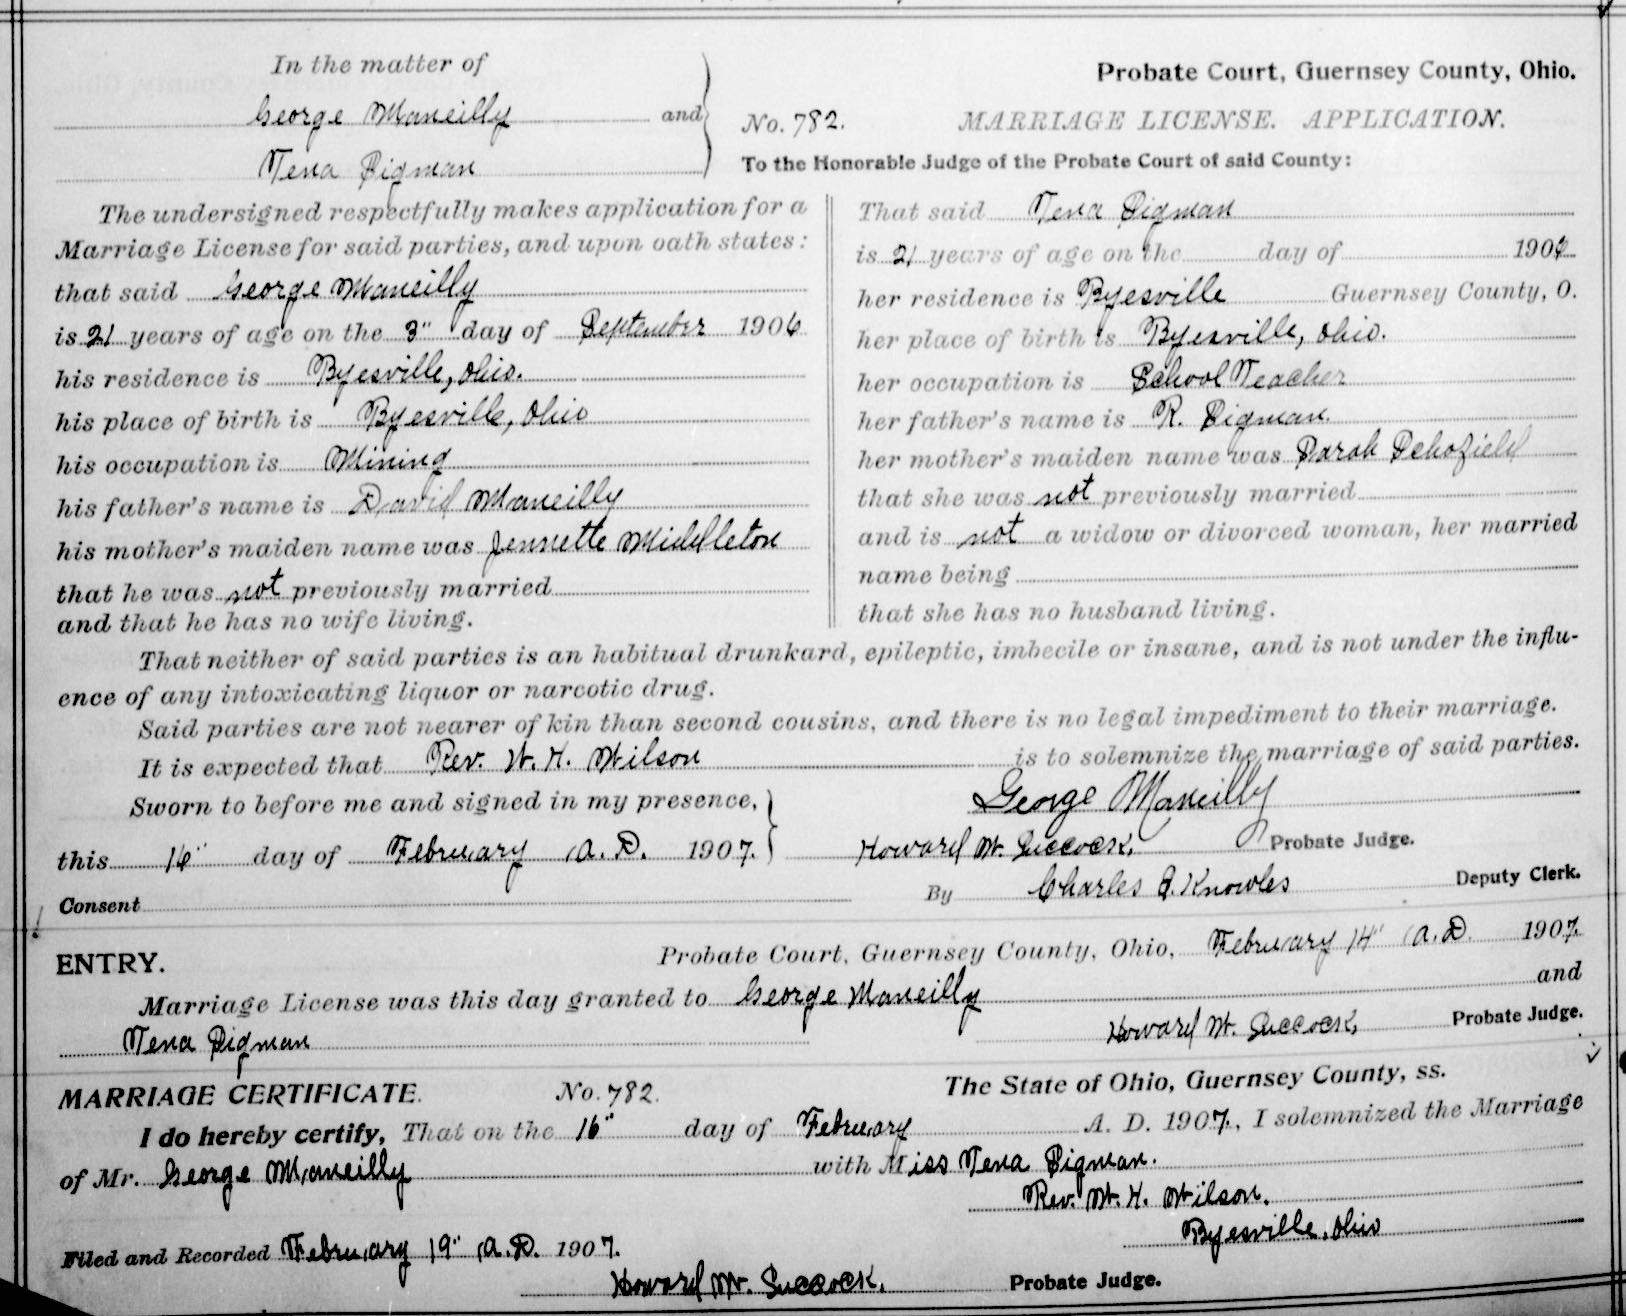 In the matter of
George Maneilly and
Tena Sigman
Probate Court, Guernsey County, Ohio.
No. 782. MARRIAGE LICENSE. APPLICATION.
To the Honorable Judge of the Probate Court of said County:
The undersigned respectfully makes application for a
Marriage License for said parties, and upon oath states:
that said George Maneilly
is 21 years of age on the 3" day of September 1906
his residence is Byesville, Ohio.
his place of birth is Byesville, Ohio
his occupation is Mining
his father's name is David Maneilly
his mother's maiden name was Jennette Middleton
that he was not previously married
and that he has no wife living.
That said Tena Sigman
is 21 years of age on the day of 1906
her residence is Byesville Guernsey County, O.
her place of birth is Byesville, Ohio.
her occupation is School Teacher
her father's name is R. Sigman.
her mother's maiden name was Sarah Schofield
that she was not previously married
and is not a widow or divorced woman, her married
name being
that she has no husband living.
That neither of said parties is an habitual drunkard, epileptic, imbecile or insane, and is not under the influ-
ence of any intoxicating liquor or narcotic drug.
Said parties are not nearer of kin than second cousins, and there is no legal impediment to their marriage.
It is expected that Rev. W. H. Wilson is to solemnize the marriage of said parties.
Sworn to before me and signed in my presence, George Maneilly
this 14" day of February A.D. 1907. Howard W. Succock, Probate Judge.
Consent By Charles S. Knowles Deputy Clerk.
ENTRY. Probate Court, Guernsey County, Ohio, February 14" A.D. 1907.
Marriage License was this day granted to George Maneilly and
Tena Sigman Howard W. Succock, Probate Judge.
MARRIAGE CERTIFICATE. No. 782. The State of Ohio, Guernsey County, ss.
I do hereby certify, That on the 16" day of February A. D. 1907., I solemnized the Marriage
of Mr. George Maneilly with Miss Tena Sigman.
Rev. W. H. Wilson.
Byesville, Ohio
Filed and Recorded February 19" A.D. 1907.
Howard W. Succock. Probate Judge.